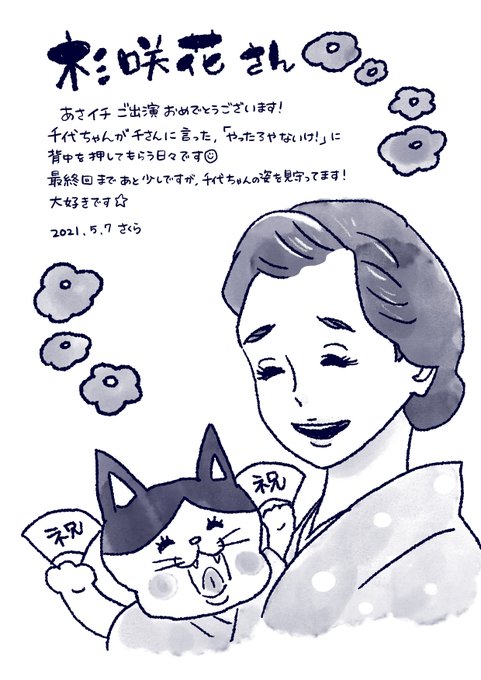 杉咲花さん
あさイチ ご出演 おめでとうございます!
千代ちゃんがチさんに言った,「やったろやないけ!」に
背中を押してもらう日々です
最終回まであと少しですが,千代ちゃんの姿を見守ってます!
大好きです☆
2021.5.7 さくら
祝
祝